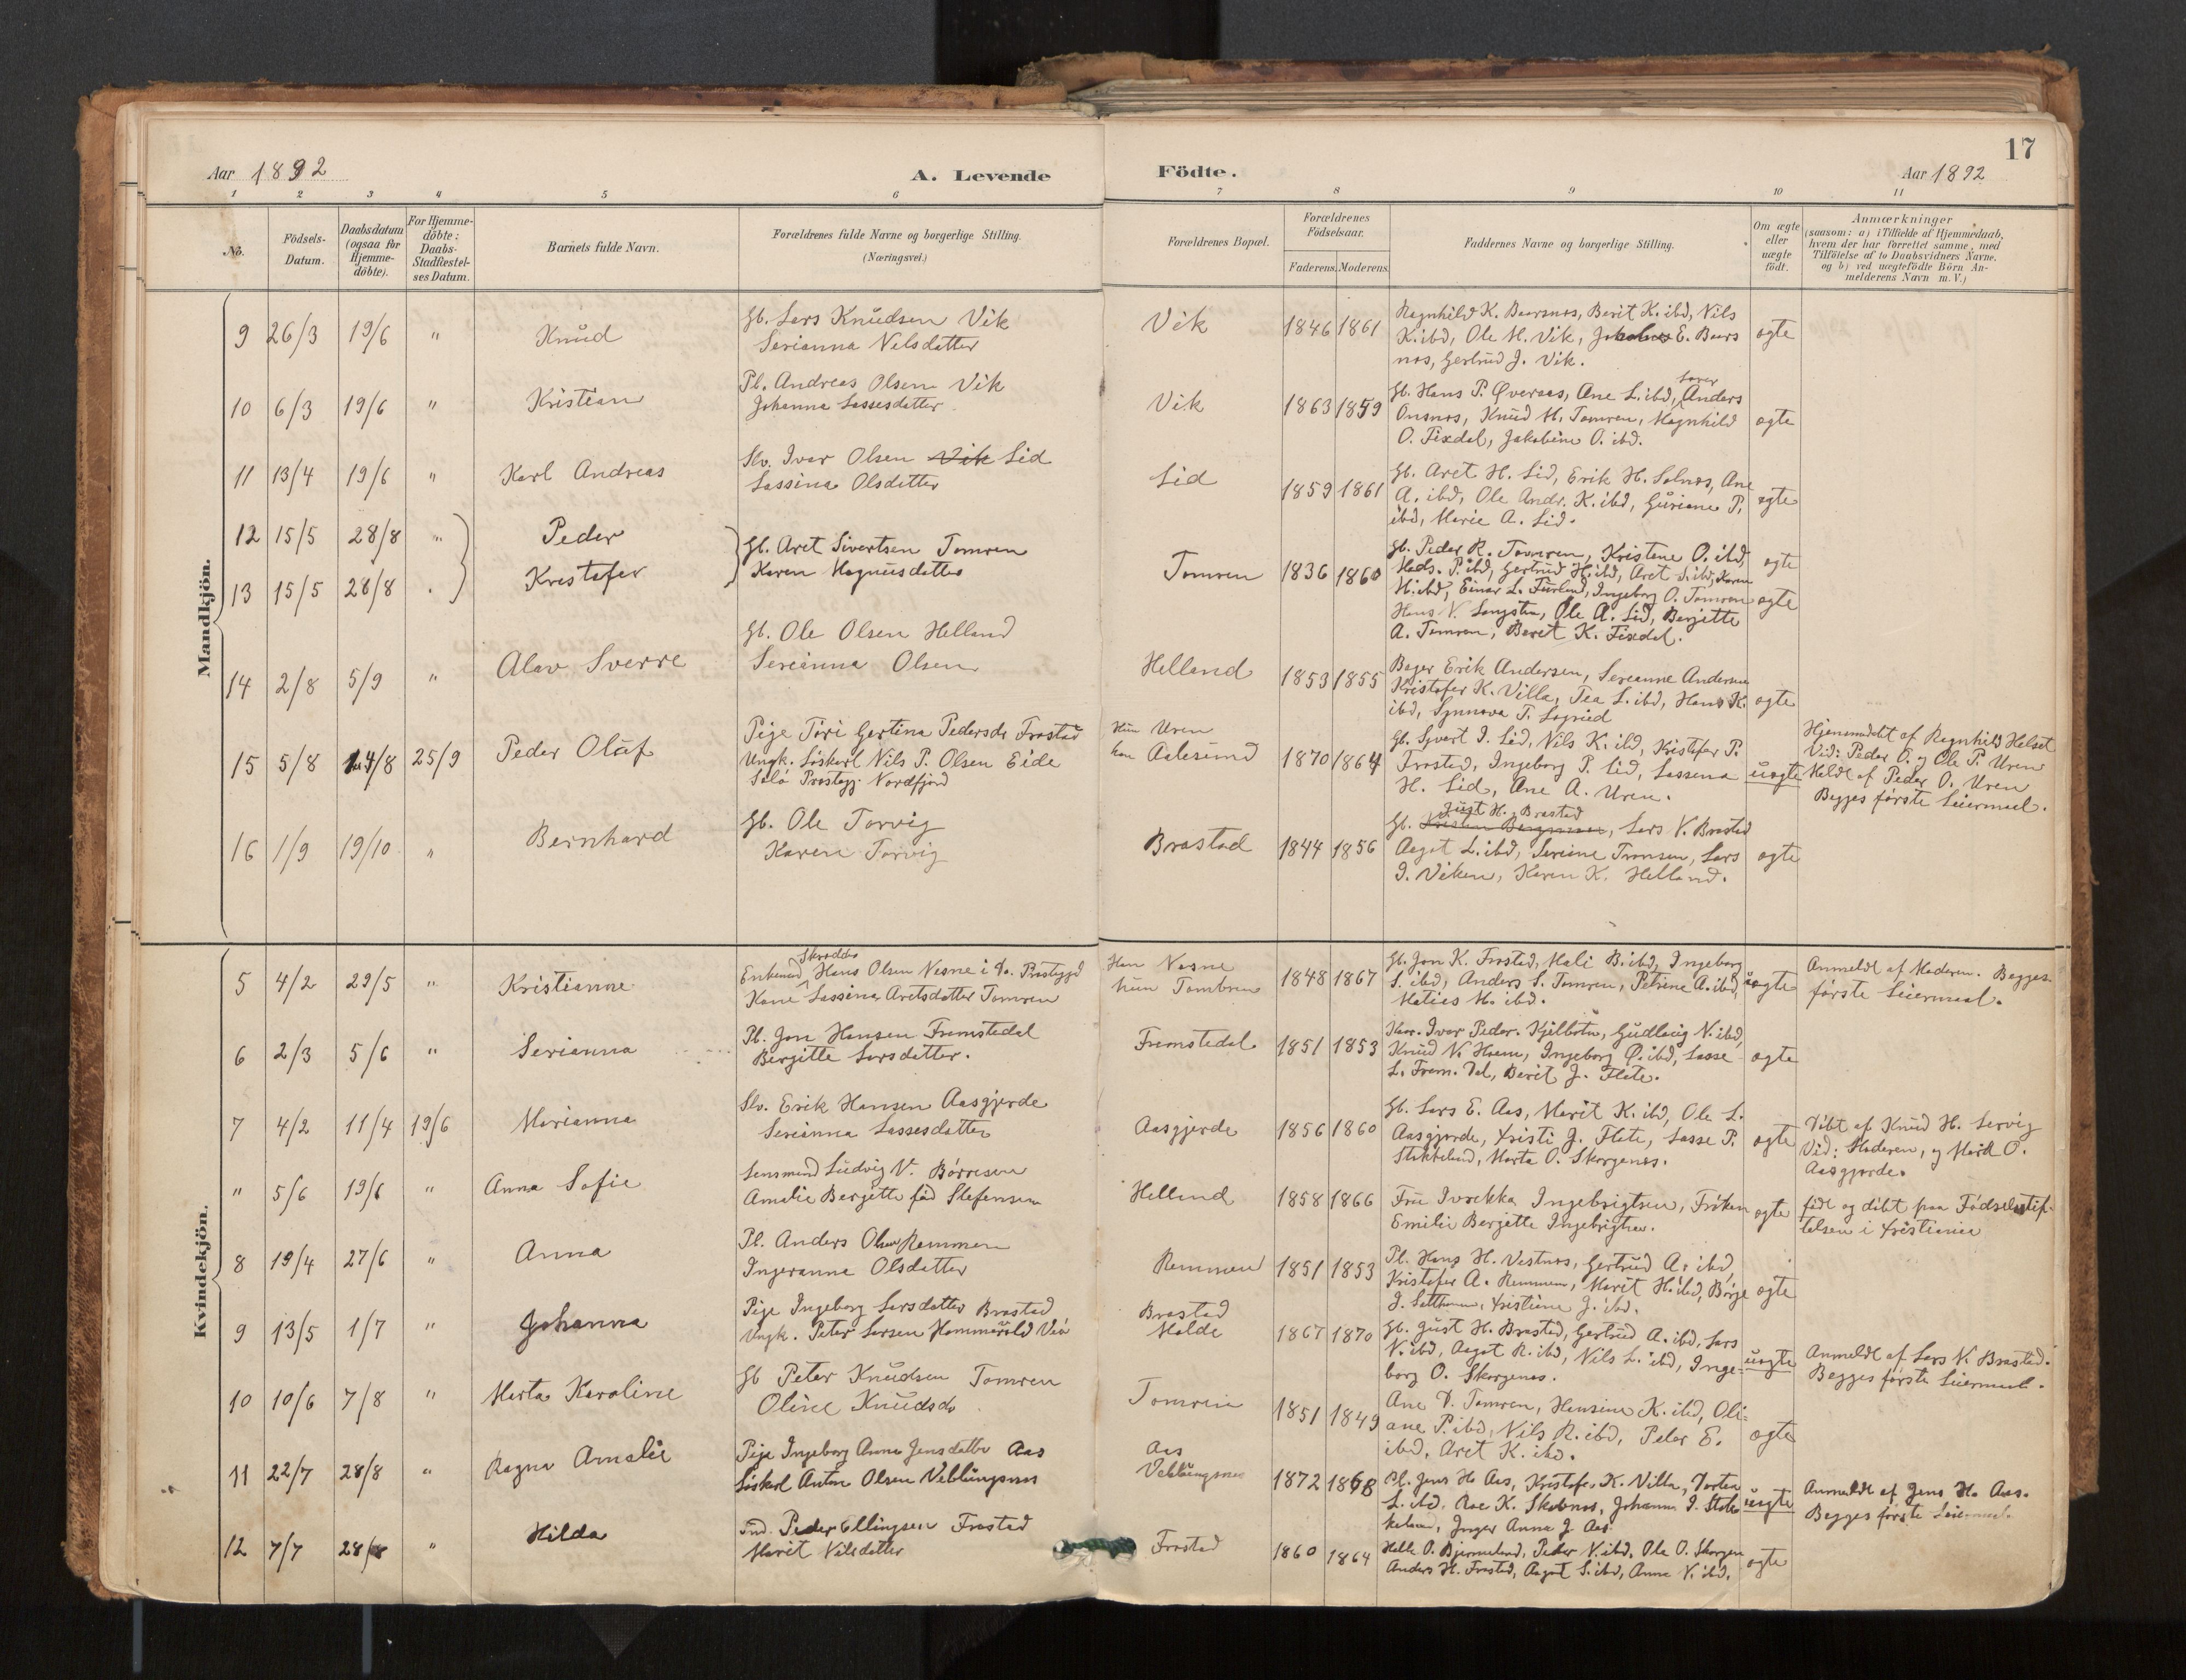 17
Aar 1892 A. Levende Födte. Aar 1892
1 2 3 4 5 6 7 8 9 10 11
No.
Födsels-
Datum.
Daabsdatum
(ogsaa for
Hjemme-
döbte).
For Hjemme-
döbte:
Daabs-
Stadfæstel-
ses Datum.
Barnets fulde Navn.
Forældrenes fulde Navne og borgerlige Stilling.
(Næringsvei.)
Forældrenes Bopæl.
Forældrenes
Födselsaar.
Faderens. Moderens.
Faddernes Navne og borgerlige Stilling.
Om ægte
eller
uægte
födt.
Anmærkninger
(saasom: a) i Tilfælde af Hjemmedaab,
hvem der har forrettet samme, med
Tilföielse af to Daabsvidners Navne,
og b) ved uægtefödte Börn An-
melderens Navn m. V.)
Mandkjön.
9 26/3 19/6 " Knud
Gb. Lars Knudsen Vik
Serianna Nilsdatter
Vik 1846 1861
Ragnhild K. Baarsnes, Berit K. ibd, Nils
K. ibd, Ole M. Vik, E. Baars
nes, Gertrud J. Vik.
ægte
10 6/3 19/6 " Kristian
Pl. Andreas Olsen Vik
Johanna Lassesdatter
Vik 1863 1859
Gb. Hans P. Øveraas, Ane L. ibd, Anders
Onsnes, Knud M. Tomren, Magnhild
O. Fixdal, Jakobine O. ibd.
ægte
11 13/4 19/6 " Karl Andreas
Slv. Ivar Olsen Vik Lid
Lassina Olsdatter
Lid 1859 1861
Gb. Aret H. Lid, Erik H. Solnes, Ane
A. ibd, Ole Andr. K. ibd, Guriane P.
ibd, Marie A. Lid.
ægte
12 15/5 28/8 " Peder
13 15/5 28/8 . Kristofer
Gb. Aret Sivertsen Tomren
Karen Magnusdatter
Tomren 1836 1860
Gb. Peder R. Tomren, Kristene O. ibd,
Mads. P. ibd, Gertrud H. ibd, Aret S. ibd, Karen
M. ibd, Einar L. Furland, Ingeborg O. Tomren
Hans V. , Ole A. Lid, Berjitte
A. Tomren, Berit K. Fixdal.
ægte
ægte
14 2/8 5/9 " Alav Sverre
Gb. Ole Olsen Helland
Serianna Olsen
Helland 1853 1855
Bager Erik Andersen, Serianne Andersen
Kristofer K. Villa, Tea L. ibd, Hans K.
ibd, Synnøva T.
ægte
15 5/8 14/8 25/9 Peder Oluf
Pige Turi Gertina Pedersdr Frostad
Ungk. Løskarl Nils P. Olsen Eide
Selø Prestegj. Nordfjord
Hun Uren
han Aalesund
1870 1864
Gb. Syvert I. Lid, Nils K. ibd, Kristofer P.
Frostad, Ingeborg P. Lid, Lassena
H. Lid, Ane A. Uren.
uægte
Hjemmedøbt af Ragnhild Helset
Vid: Peder O. og Ole P. Uren
Meldt af Peder O. Uren
Begges første Leiermaal.
16 1/9 19/10 " Bernhard
Gb. Ole Torvig
Karen Torvig
Brastad 1844 1856
Just H. Brastad
Gb. , Lars V. Brastad
Aagot L. ibd, Seriane Tronsen, Lars
I. Viken, Karen K. Helland.
ægte
Kvindekjön.
5 4/2 29/5 " Kristianne
Skrædder
Enkemand Hans Olsen Nesne i do. Prestegjd
Kone Lassina Aretsdatter Tomren
Han Nesne
hun Tombren
1848 1867
Gb. Jon K. Frostad, Mali B. ibd, Ingeborg
S. ibd, Anders S. Tomren, Petrine A. ibd,
Matias M. ibd.
uægte
Anmeldt af Moderen. Begges
første Leiermaal.
6 2/3 5/6 " Serianna
Pl. Jon Hansen Fremstedal
Bergitte Larsdatter.
Fremstedal 1851 1853
Ivar Peder. Kjelbotn, Gudlaug N. ibd,
Knud N. Haem, Ingeborg Ø. ibd, Lasse
L. Frem. Dal, Berit J. Flate.
ægte
7 4/2 11/4 19/6 Marianna
Slv. Erik Hansen Aasgjerde
Serianna Lassesdatter
Aasgjerde 1856 1860
Gb. Lars E. Aas, Marit K. ibd, Ole L.
Aasgjerde, Kristi J. Flate, Lasse P.
Stokkeland, Marta O. Skorgenes.
ægte
Døbt af Knud H. Sørvig
Vid: Moderen, og Marit O.
Aasgjerde.
" 5/6 19/6 " Anna Sofie
Lensmand Ludvig V. Børresen
Amalie Bergitte fød Stefensen
Helland 1858 1866
Fru Ingebrigtsen, Frøken
Emilie Bergitte Ingebrigtsen.
ægte
født og døbt paa Fødselsstif-
telsen i Kristiania
8 19/4 27/6 " Anna
Pl. Anders Olsen Remmen
Ingeranna Olsdatter
Remmen 1851 1853
Pl. Hans H. Vestnes, Gertrud A. ibd,
Kristofer A. Remmem, Marit H. ibd, Børge
J. , Kristiane J. ibd.
ægte
9 13/5 1/7 " Johanna
Pige Ingeborg Larsdatter Brastad
Ungk. Peter Larsen Hammervold Veø
Brastad
Molde
1867 1870
Gb. Just H. Brastad, Gertrud A. ibd, Lars
V. ibd, Aagot R. ibd, Nils L. ibd, Inge-
borg O. Skorgenes.
uægte
Anmeldt af Lars V. Brastad.
Begges første Leiermaal.
10 10/6 7/8 " Marta Karoline
Gb Peter Knudsen Tomren
Oline Knudsdr
Tomren 1851 1849
Ane D. Tomren, Hansine K. ibd, Oli-
ane P. ibd, Nils R. ibd, Peter E.
ibd, Aret K. ibd.
ægte
11 22/7 28/8 " Ragna Amalie
Pige Ingeborg Anna Jensdatter Aas
Løskarl Anton Olsen Veblungsnes
Aas
Veblungsnes
1872 1868
Pl. Jens H. Aas, Kristofer K. Villa,
L. ibd, K. , Johanna I. Stok
keland, Inger Anna J. Aas
uægte
Anmeldt af Jens H. Aas.
Begges første Leiermaal.
12 7/7 28/8 " Hilda
Ind. Peder Ellingsen Frostad
Marit Nilsdatter
Frostad 1860 1864
Helle O. Bjermeland, Peder N. ibd, Ole O. Skorgen
Anders H. Frostad, Aagot S. ibd, Anne V. ibd.
ægte